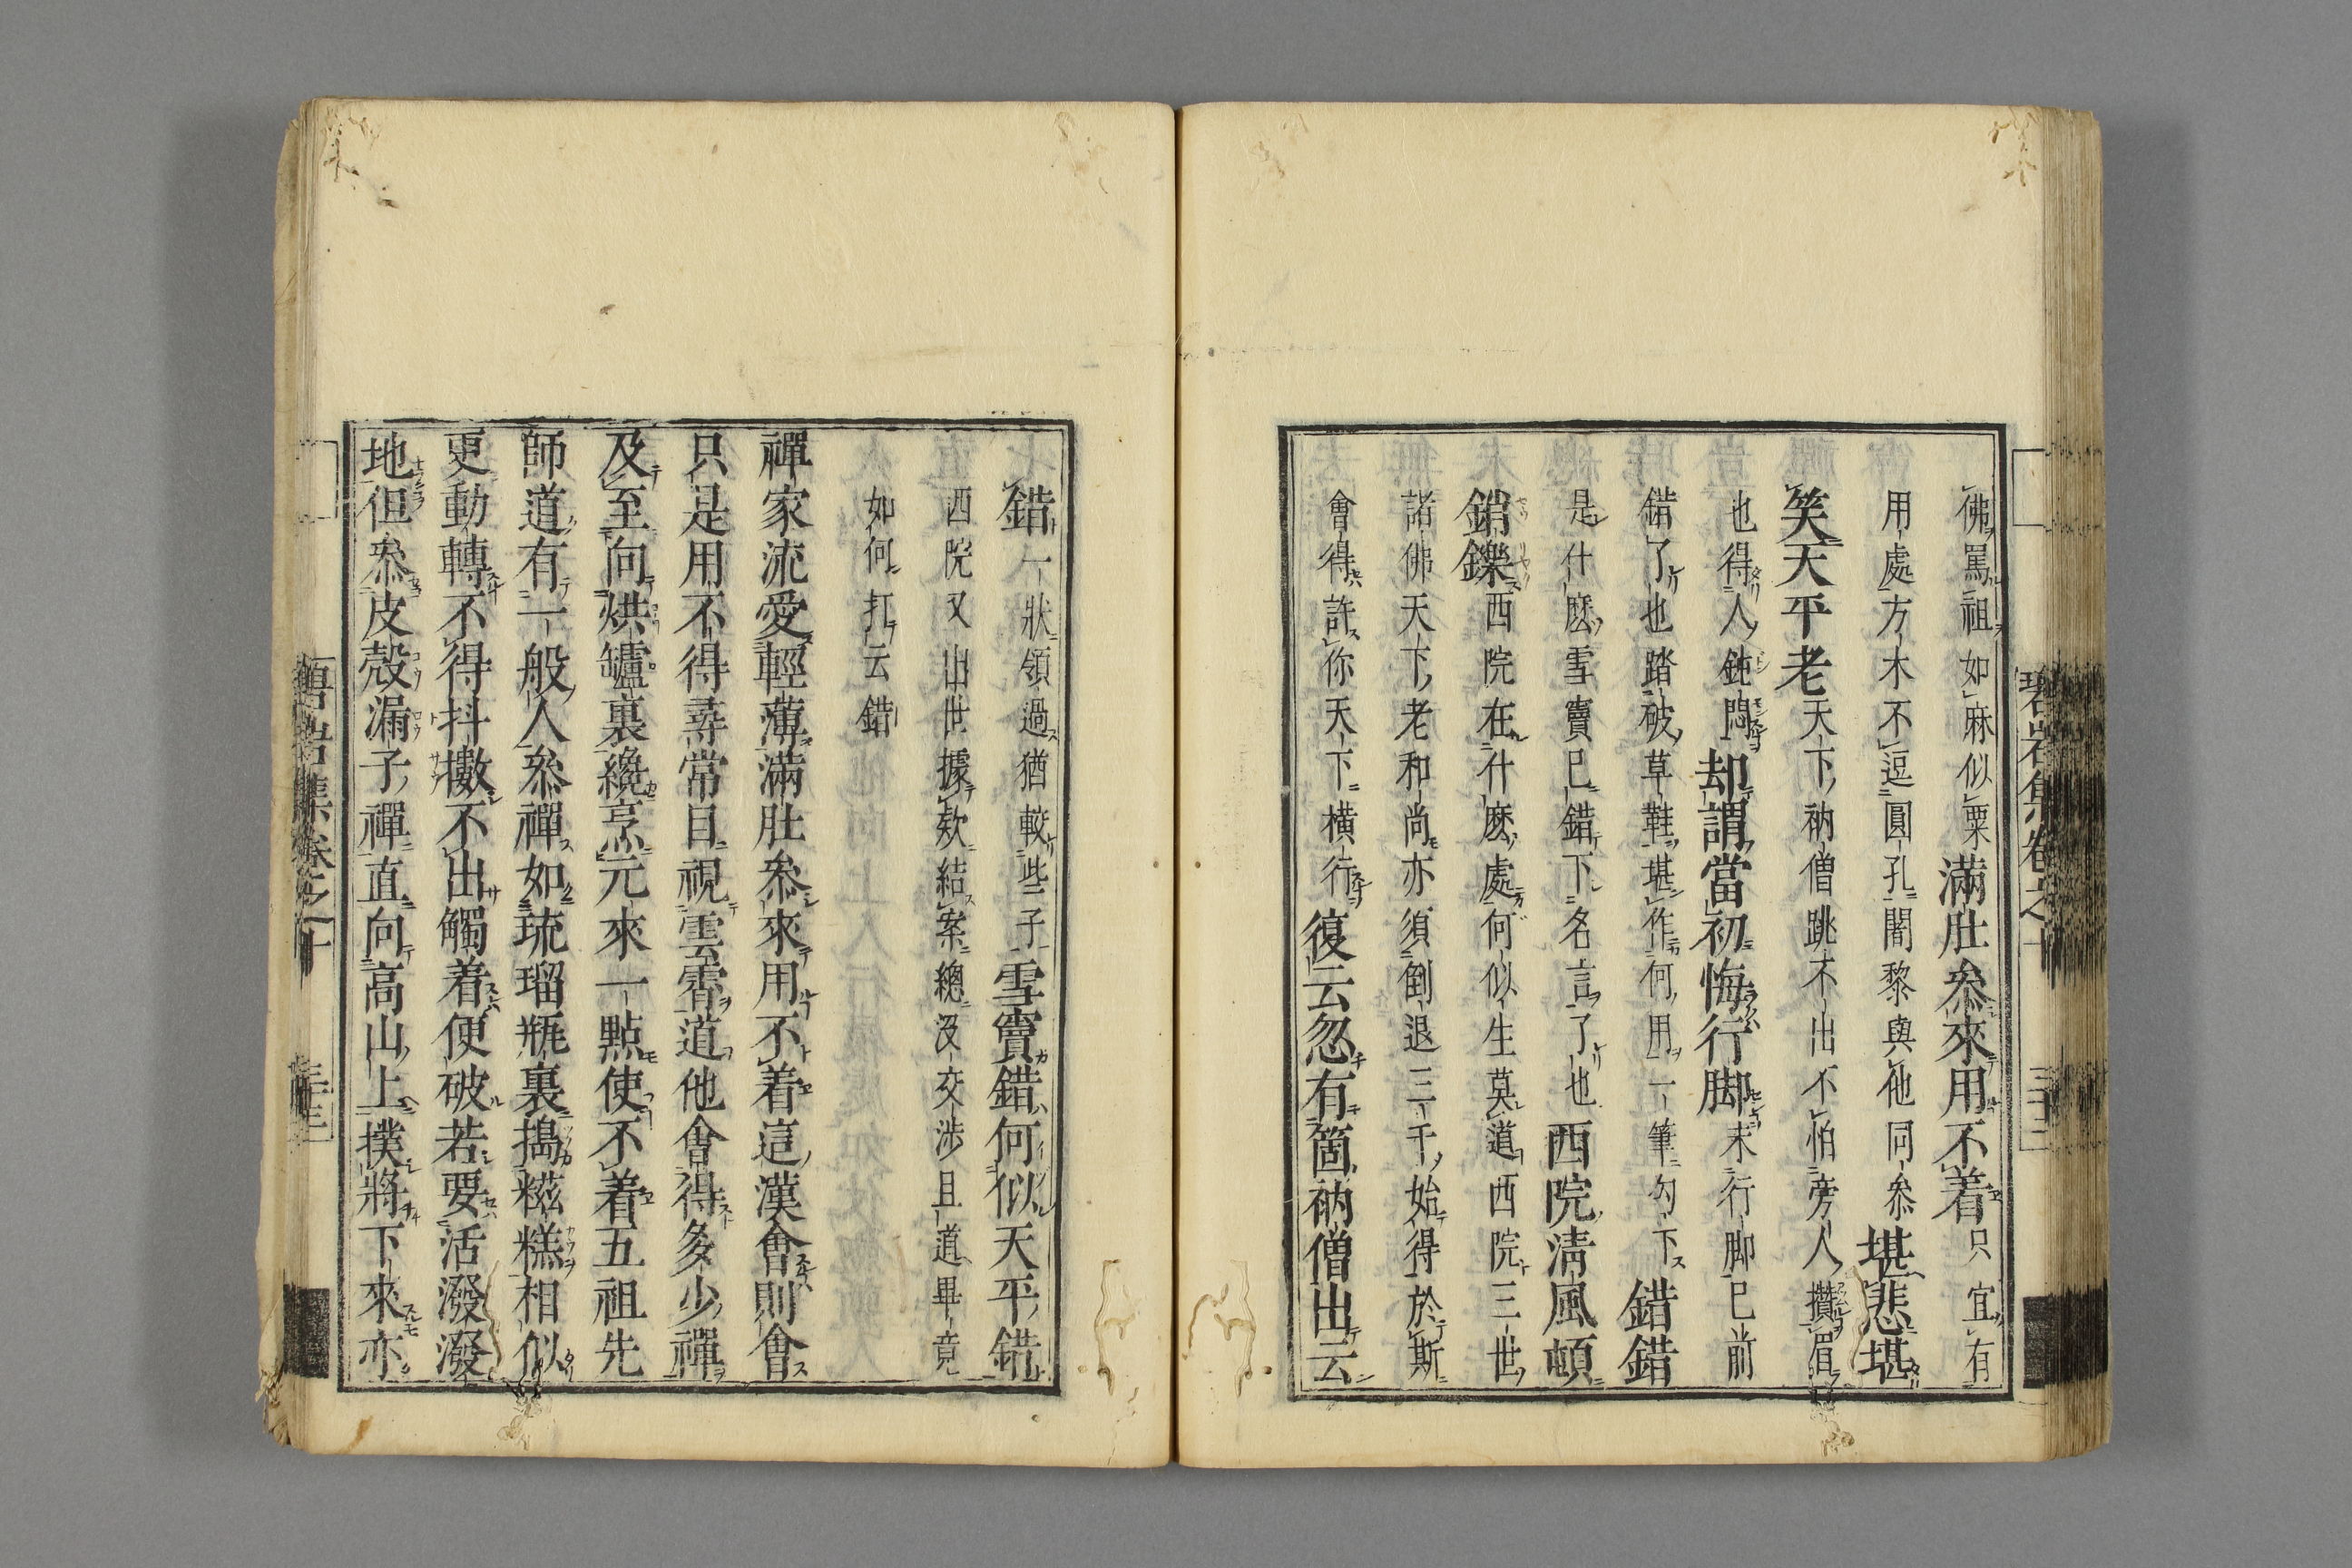 佛罵祖如麻似粟滿肚叅來用不着只宜有
用處方木不逗圓孔闍黎與他同叅堪悲堪
笑天平老天下衲僧跳不出不怕旁人攢眉
也得人鈍悶却謂當初悔行脚未行脚已前
錯了也踏破草鞋堪作何用一筆勾下錯錯
是什麽雪竇已錯下名言了也西院清風頓
銷鑠西院在什麽處何似生莫道西院三世
諸佛天下老和尚亦須倒退三千始得於斯
會得許你天下橫行復云忽有箇衲僧出云
錯一狀領過猶較些子雪竇錯何似天平錯
西院又出世據欵結案總没交涉且道畢竟
如何打云錯
禪家流愛輕薄滿肚叅來用不着這漢會則會
只是用不得尋常目視雲霄道他會得多少禪
及至向烘鑪裏纔烹元來一點使不着五祖先
師道有一般人叅禪如琉瑠瓶裏搗糍糕相似
更動轉不得抖擻不出觸着便破若要活潑潑
地但叅皮殼漏子禪直向高山上撲將下來亦